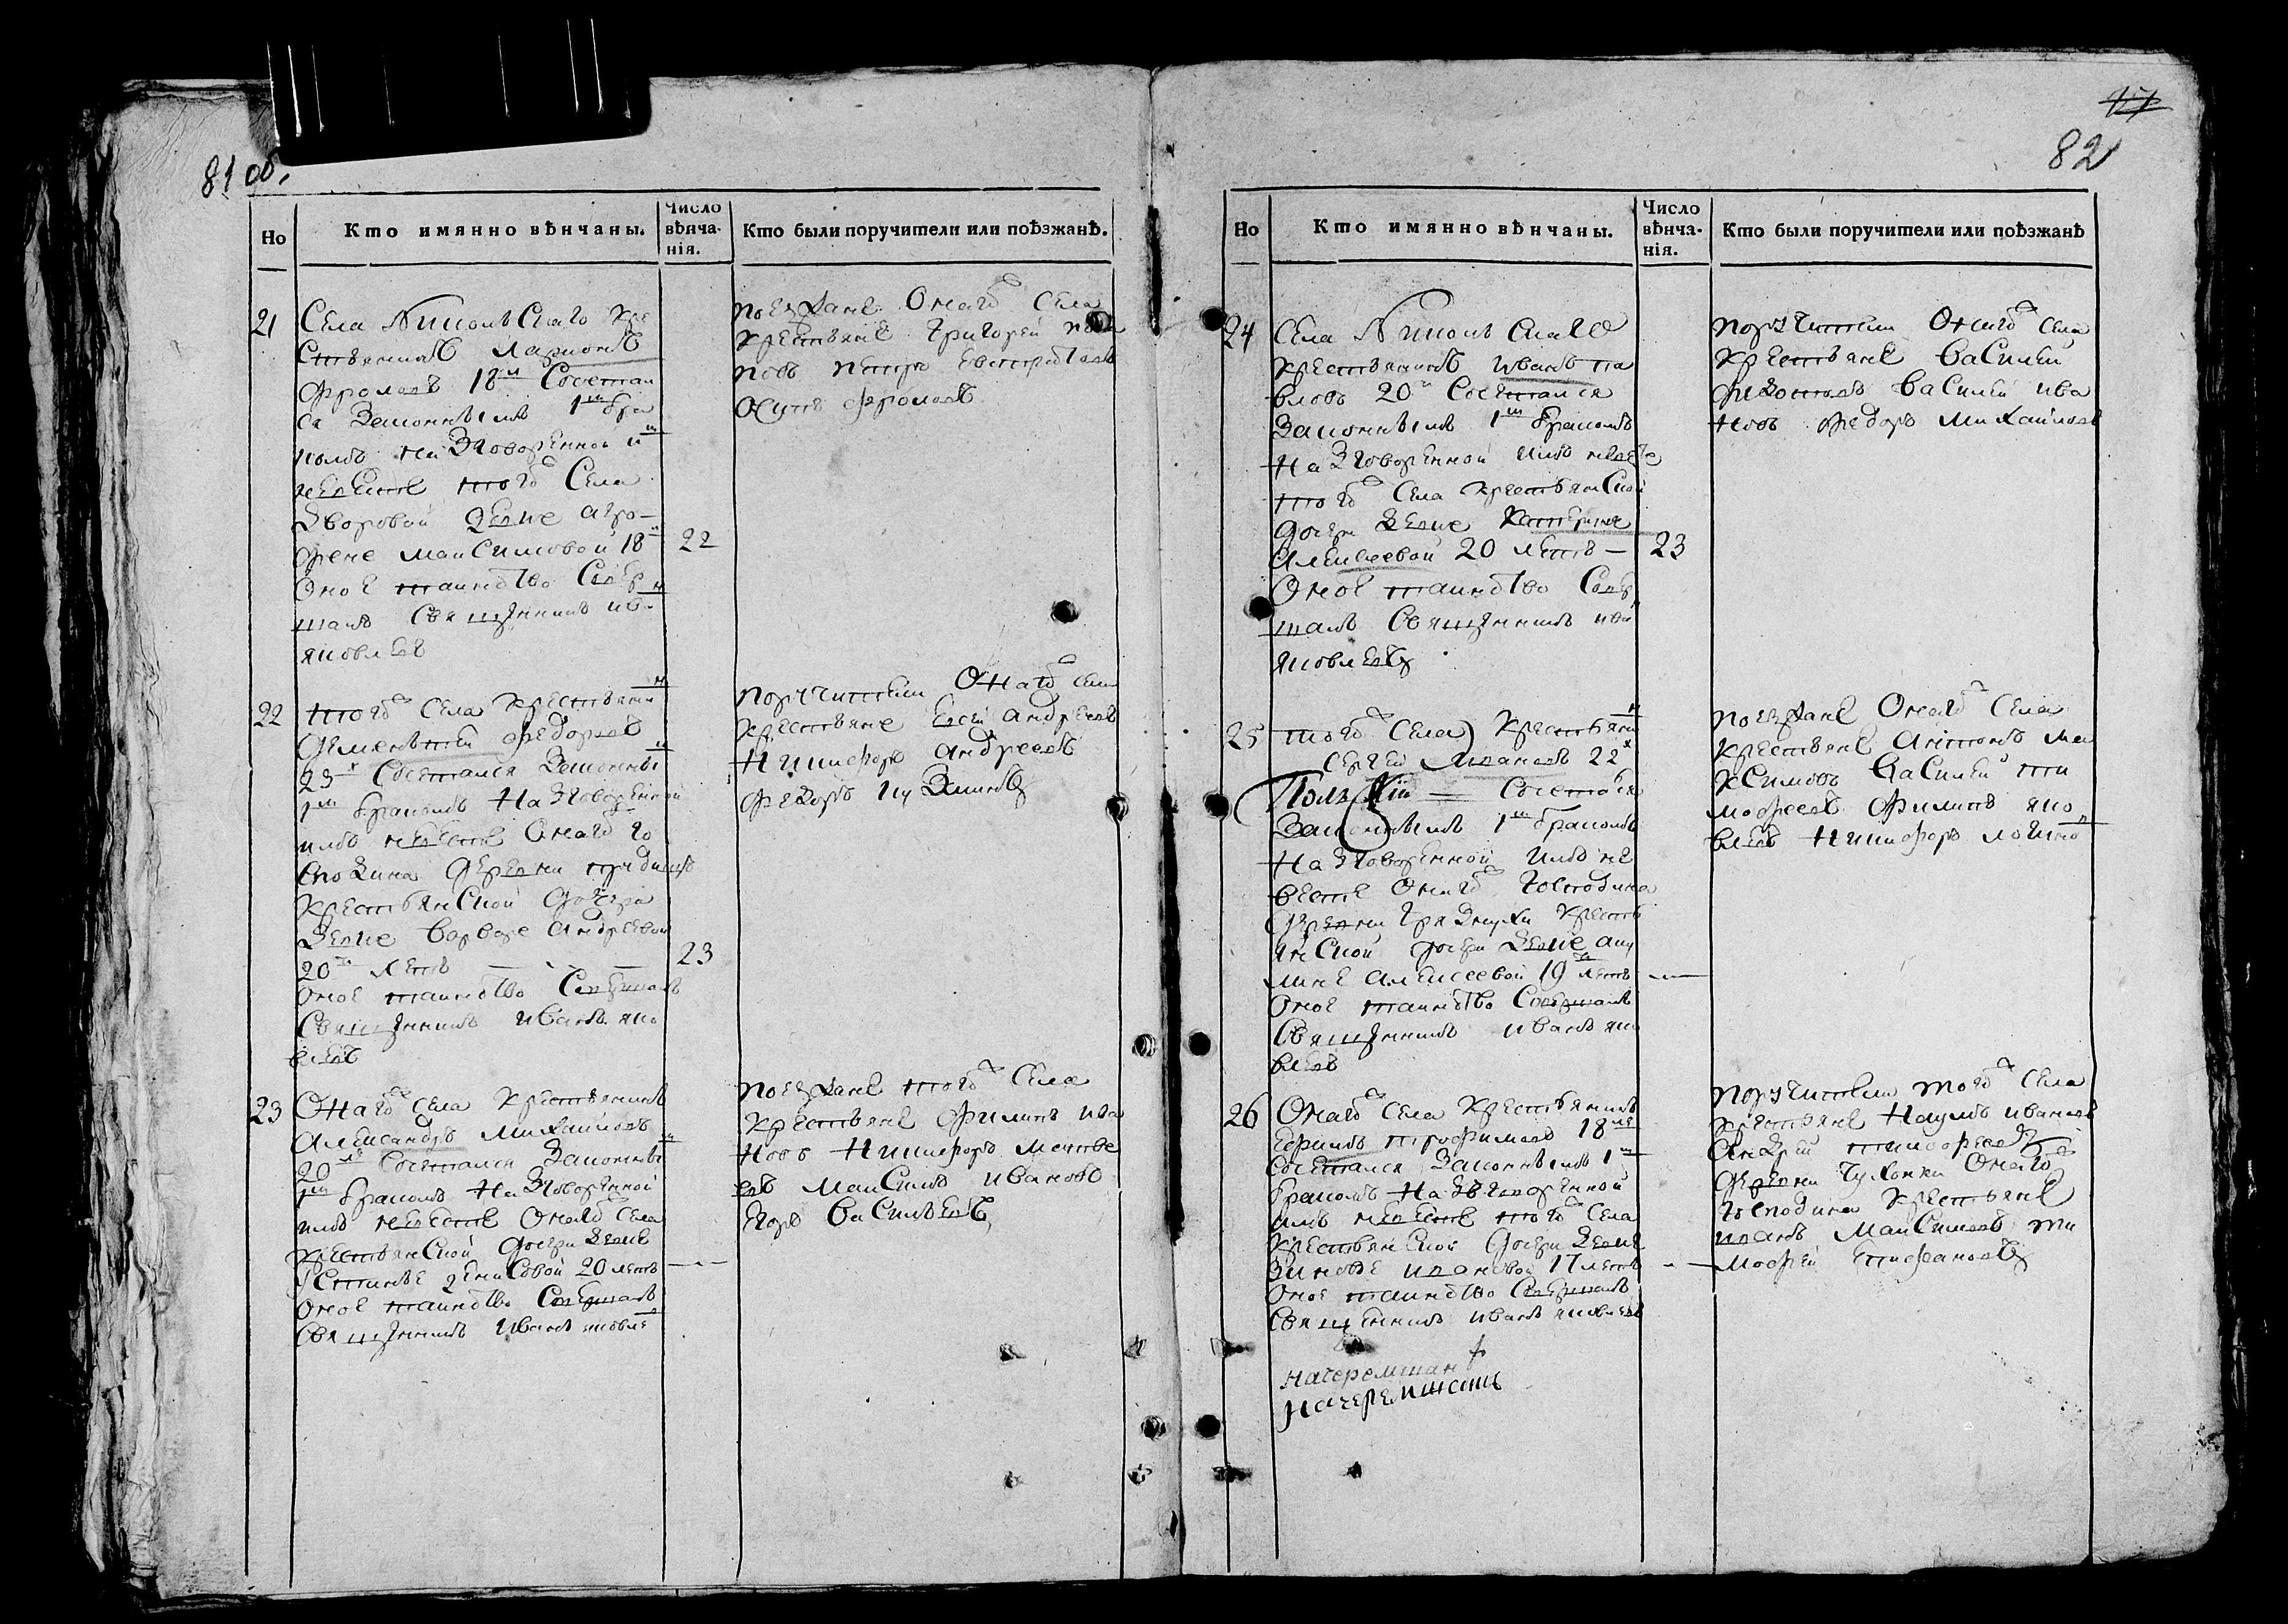 81 об.
Но
Кто имянно вѣнчаны.
Число
вѣнча-
нія.
Кто были поручители или поѣзжанѣ.
21
Села Никольскаго кре
стьянинъ Ларионъ
Фроловъ 18 Сочетал
ся законнымъ 1м бра
комъ на Зговоренной и
невесте того Села
дворовой девке Агро-
фене Максимовой 18
22
Оное таинство Совер
шалъ Священникъ ива
яковлевъ
поезжане Онаго Села
крестьяне Григорей
новъ петръ Евстратовъ
Осипъ фроловъ
22
того Села крестьяни
Дементей Федоровъ
23 Сочетался Законны
1м бракомъ На Зговоренной
имъ невесте Онаго го
сподина деревни
крестьянской дочери
девке Варваре Андреевой
20 летъ
23
Оное таинство Совершалъ
Священникъ иванъ яко
влевъ
поручители Онаго Села
крестьяне Андреевъ
Никифоръ Андреевъ
Федоръ
23
Онаго Села крестьянинъ
Александръ Михайловъ
20 Сочетался Законны
1м бракомъ На Зговоренной
имъ невесте Онаго Села
крестьянской дочери девке
Устинье денисовой 20 летъ
Оное таинство Совершалъ
Священникъ Иванъ яковле
поезжане того Села
крестьяне Филипъ ива
новъ Никифоръ Матве
евъ Максимъ Ивановъ
Егоръ Васильевъ
17
82
Но
Кто имянно вѣнчаны.
Число
вѣнча-
нія.
Кто были поручители или поѣзжанѣ
24
Села Никольскаго
крестьянинъ иванъ па
вловъ 20 Сочетался
Законнымъ 1м бракомъ
На Зговоренной имъ невесте
того Села крестьянской
дочери девке Катерине
Алексеевой 20 летъ —
23
Оное таинство Совер
шалъ Священникъ ива
яковлевъ
поручители Онаго Села
крестьяне Василей
Федотовъ Василей ива
новъ Федоръ Михайловъ
25
того Села крестьяни
Сергей Ивановъ 22
Сочетался
Законнымъ 1м бракомъ
На Зговоренной имъ не
весте Онаго Господина
деревни Грязнухи кресть
янской дочери девке аку
лине Алексеевой 19 летъ
Оное таинство Совершалъ
Священникъ иванъ яко
влевъ
поезжане Онаго Села
крестьяне Антонъ Ма
ксимовъ Василей ти
мофеевъ Филипъ яко
влевъ Никифоръ
26
Онаго Села крестьянинъ
Ефимъ трофимовъ 18
Сочетался Законнымъ 1м
бракомъ На Зговоренной
имъ невесте того Села
крестьянской дочери девке
Зиновье ивановой 17 летъ
Оное таинство Совершалъ
Священникъ иванъ яковлевъ
поручители того Села
крестьяне Наумъ ивановъ
Андрей тимофеевъ
деревни Чухонки Онаго
господина крестьяне
иванъ Максимовъ ти
мофей Епифановъ
начеремшан
начеремшань